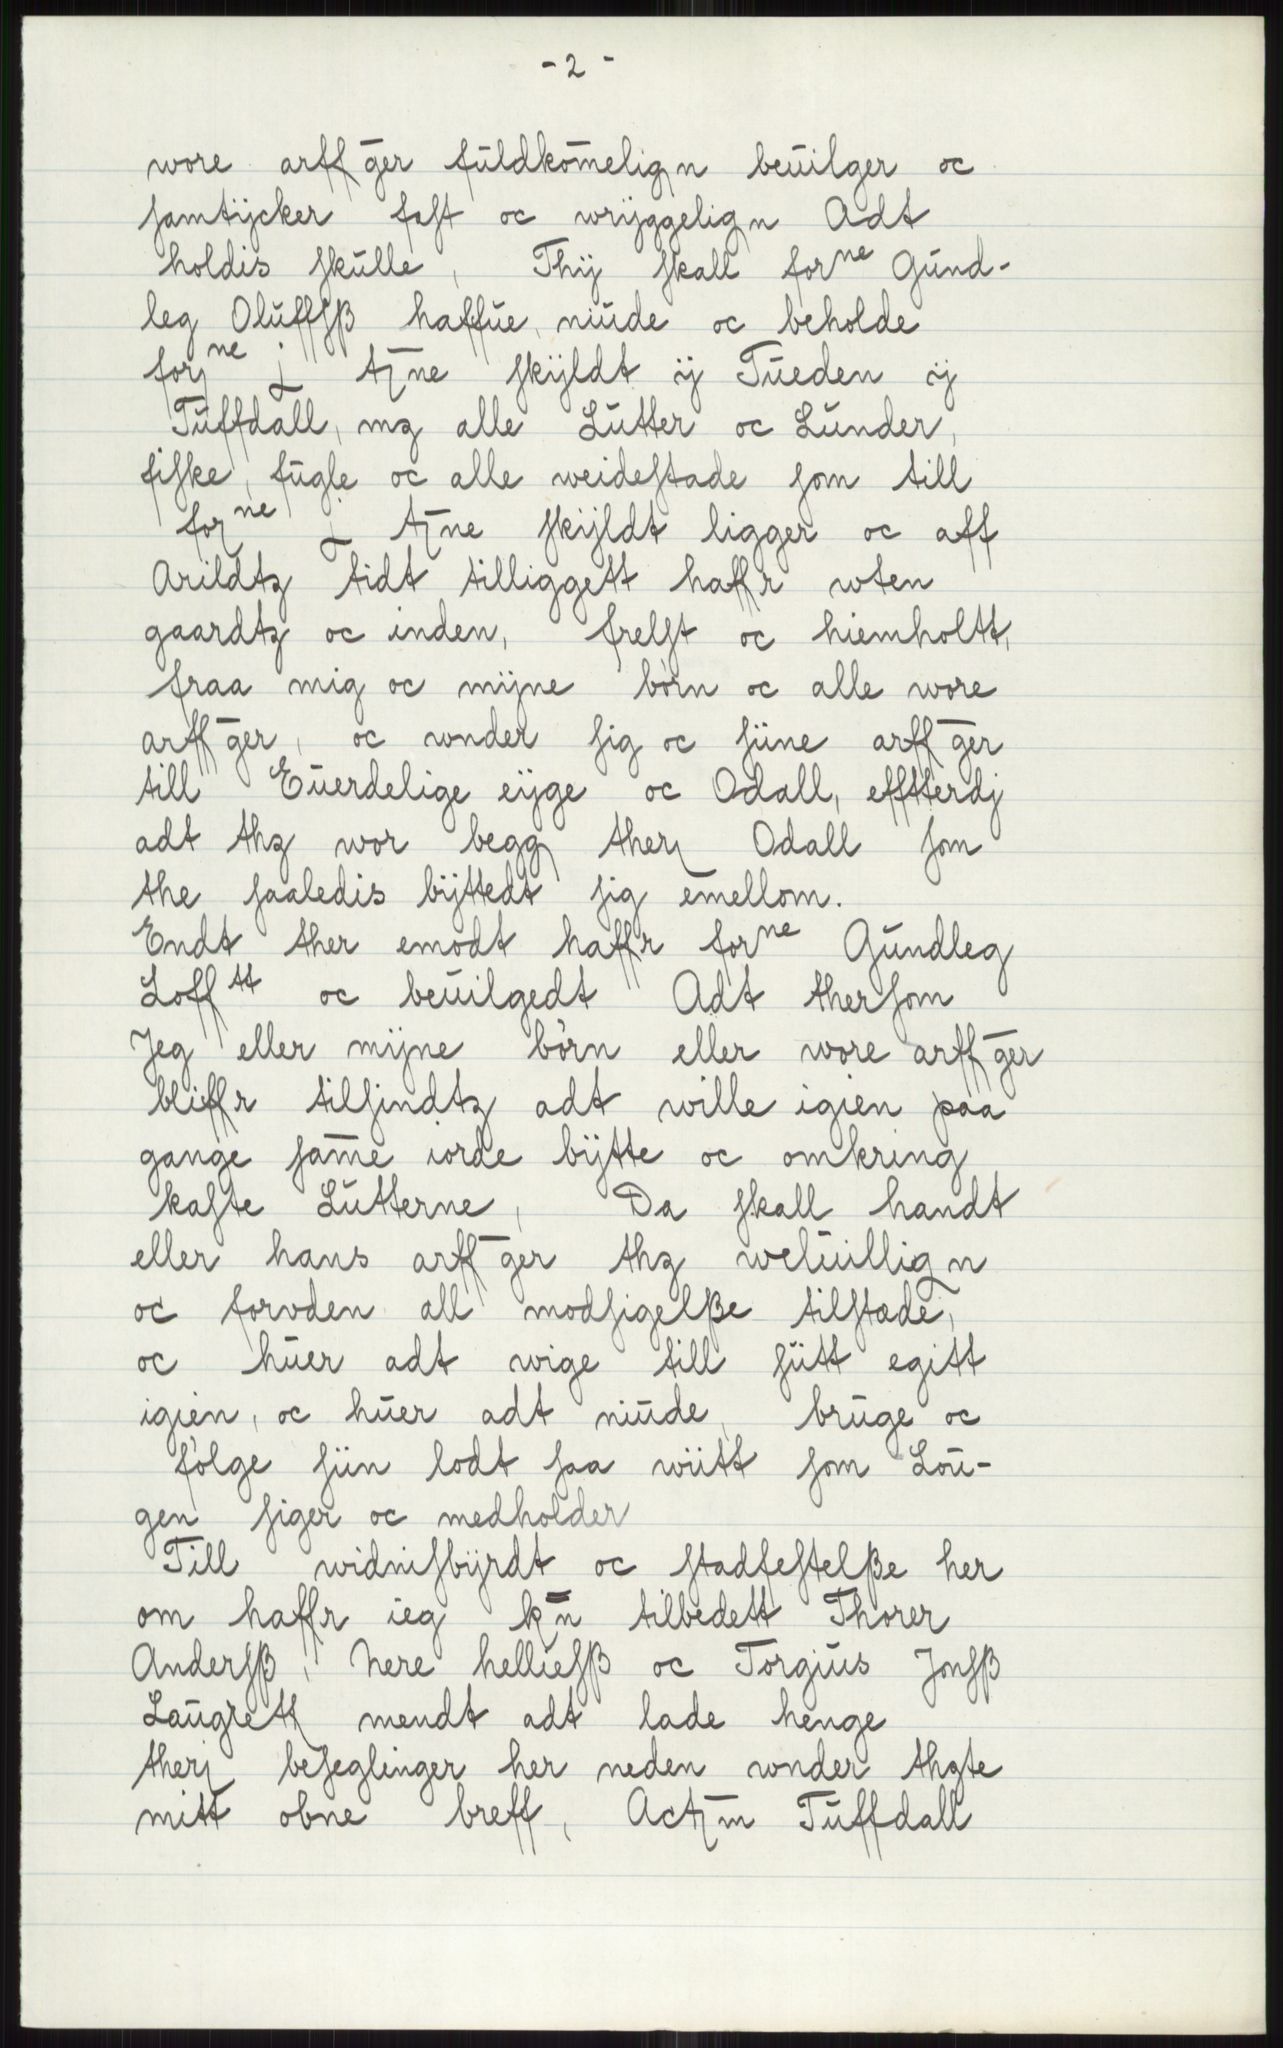 - 2 -
wore arff̄ger fuldkom̄elign beuilger oc
samtÿcker fast oc wrÿggelign Adt
holdis skulle, Thÿ skall forne Gund-
leg Oluffsß haffue, niude oc beholde
forne j tn̄e skÿldt ÿ Tueden ÿ
Tuffdall, mz alle Lutter oc Lunder,
fiske, fugle oc alle weidestade som till
forne j tn̄e skÿldt ligger oc aff
Arildtz tidt tilliggett haffr wten
gaardtz oc inden, frelst oc hiemholtt,
fraa mig oc mÿne börn oc alle wore
arff̄ger, oc wnder sig oc siine arff̄ger
till Euerdelige eÿge oc Odall, effterdj
adt thz wor begg ther Odall som
the saaledis bÿttedt sig emellom.
Endt ther emodt haffr forne Gundleg
Lofftt oc beuilgedt Adt thersom
Jeg eller mÿne börn eller wore arff̄ger
bliffr tilsindtz adt wille igien paa
gange sam̄e iorde bÿtte oc omkring
kaste Lutterne, Da skall handt
eller hans arff̄ger thz weluillign
oc forvden all modsigelße tilstæde,
oc huer adt wige till siitt egitt
igien, oc huer adt niude, bruge oc
fölge siin lodt saa wiitt som Lou-
gen siger oc medholder
Till widnisbÿrdt oc stadfestelße her
om haffr ieg kn̄ tilbedett Thorer
Andersß, Nere helliesß oc Torgius Jonsß
Laugrett mendt adt lade henge
theri beseglinger her neden wnder thzte
mitt obne breff, Actm̄ Tuffdall